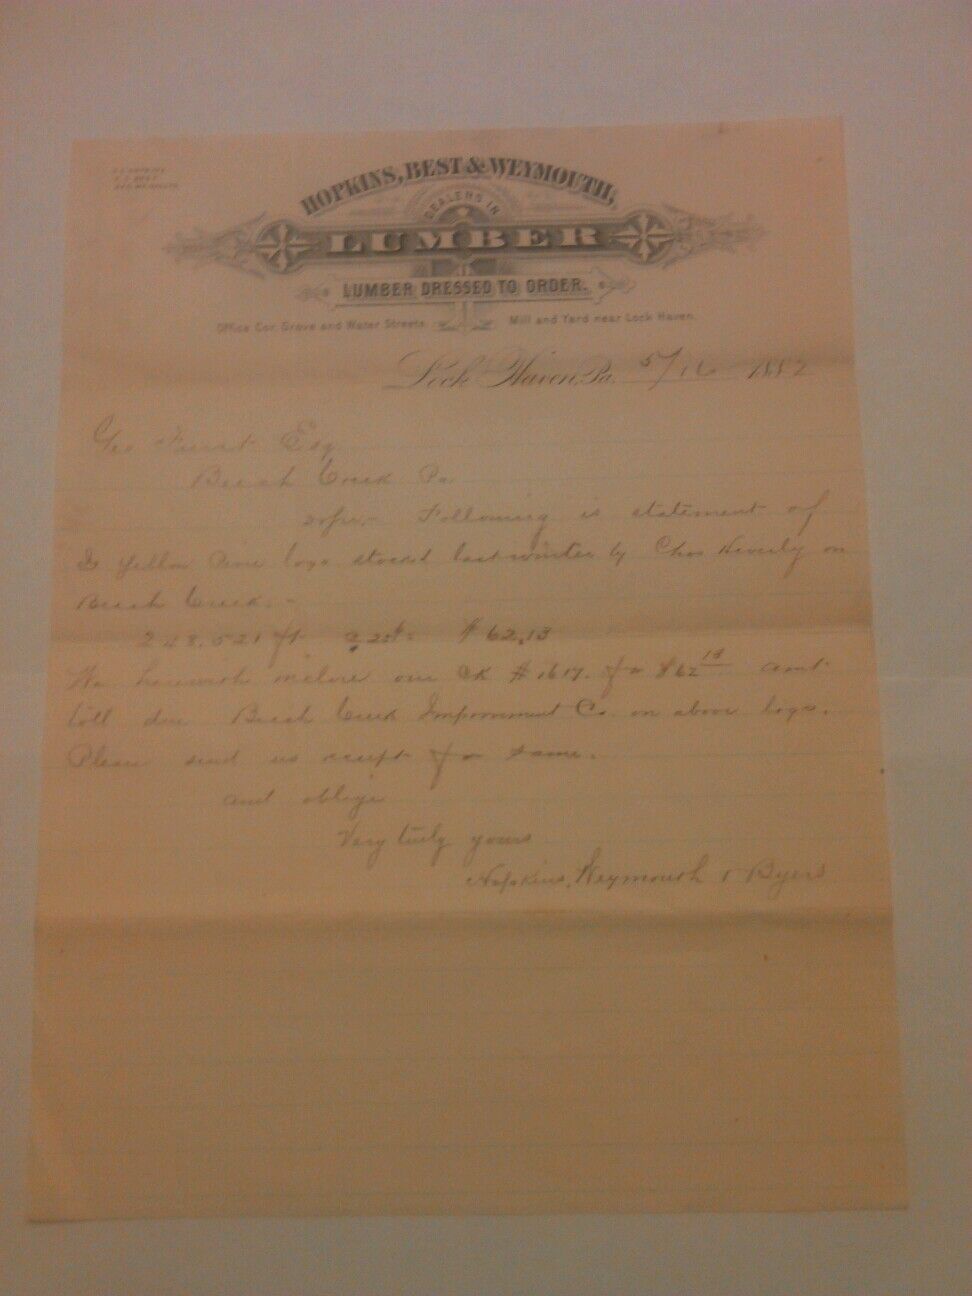 HOPKINS, BEST & WEYMOUTH,
DEALERS IN
LUMBER
LUMBER DRESSED TO ORDER.
Office Cor. Grove and Water Streets. Mill and Yard near Lock Haven.
Lock Haven, Pa. 5/16 1882
Geo Furst Esq
Beech Creek Pa
Following is statement of
yellow Pine logs stocked last winter by Chas Heverly on
Beech Creek. -
248.521 ft @ 25¢ = $62.13
We herewith inclose our CK #1617. for $62 13 amt
toll due Beech Creek Improvement Co. on above logs.
Please send us receipt for same.
and oblige
Very truly yours
Hopkins, Weymouth & Byers